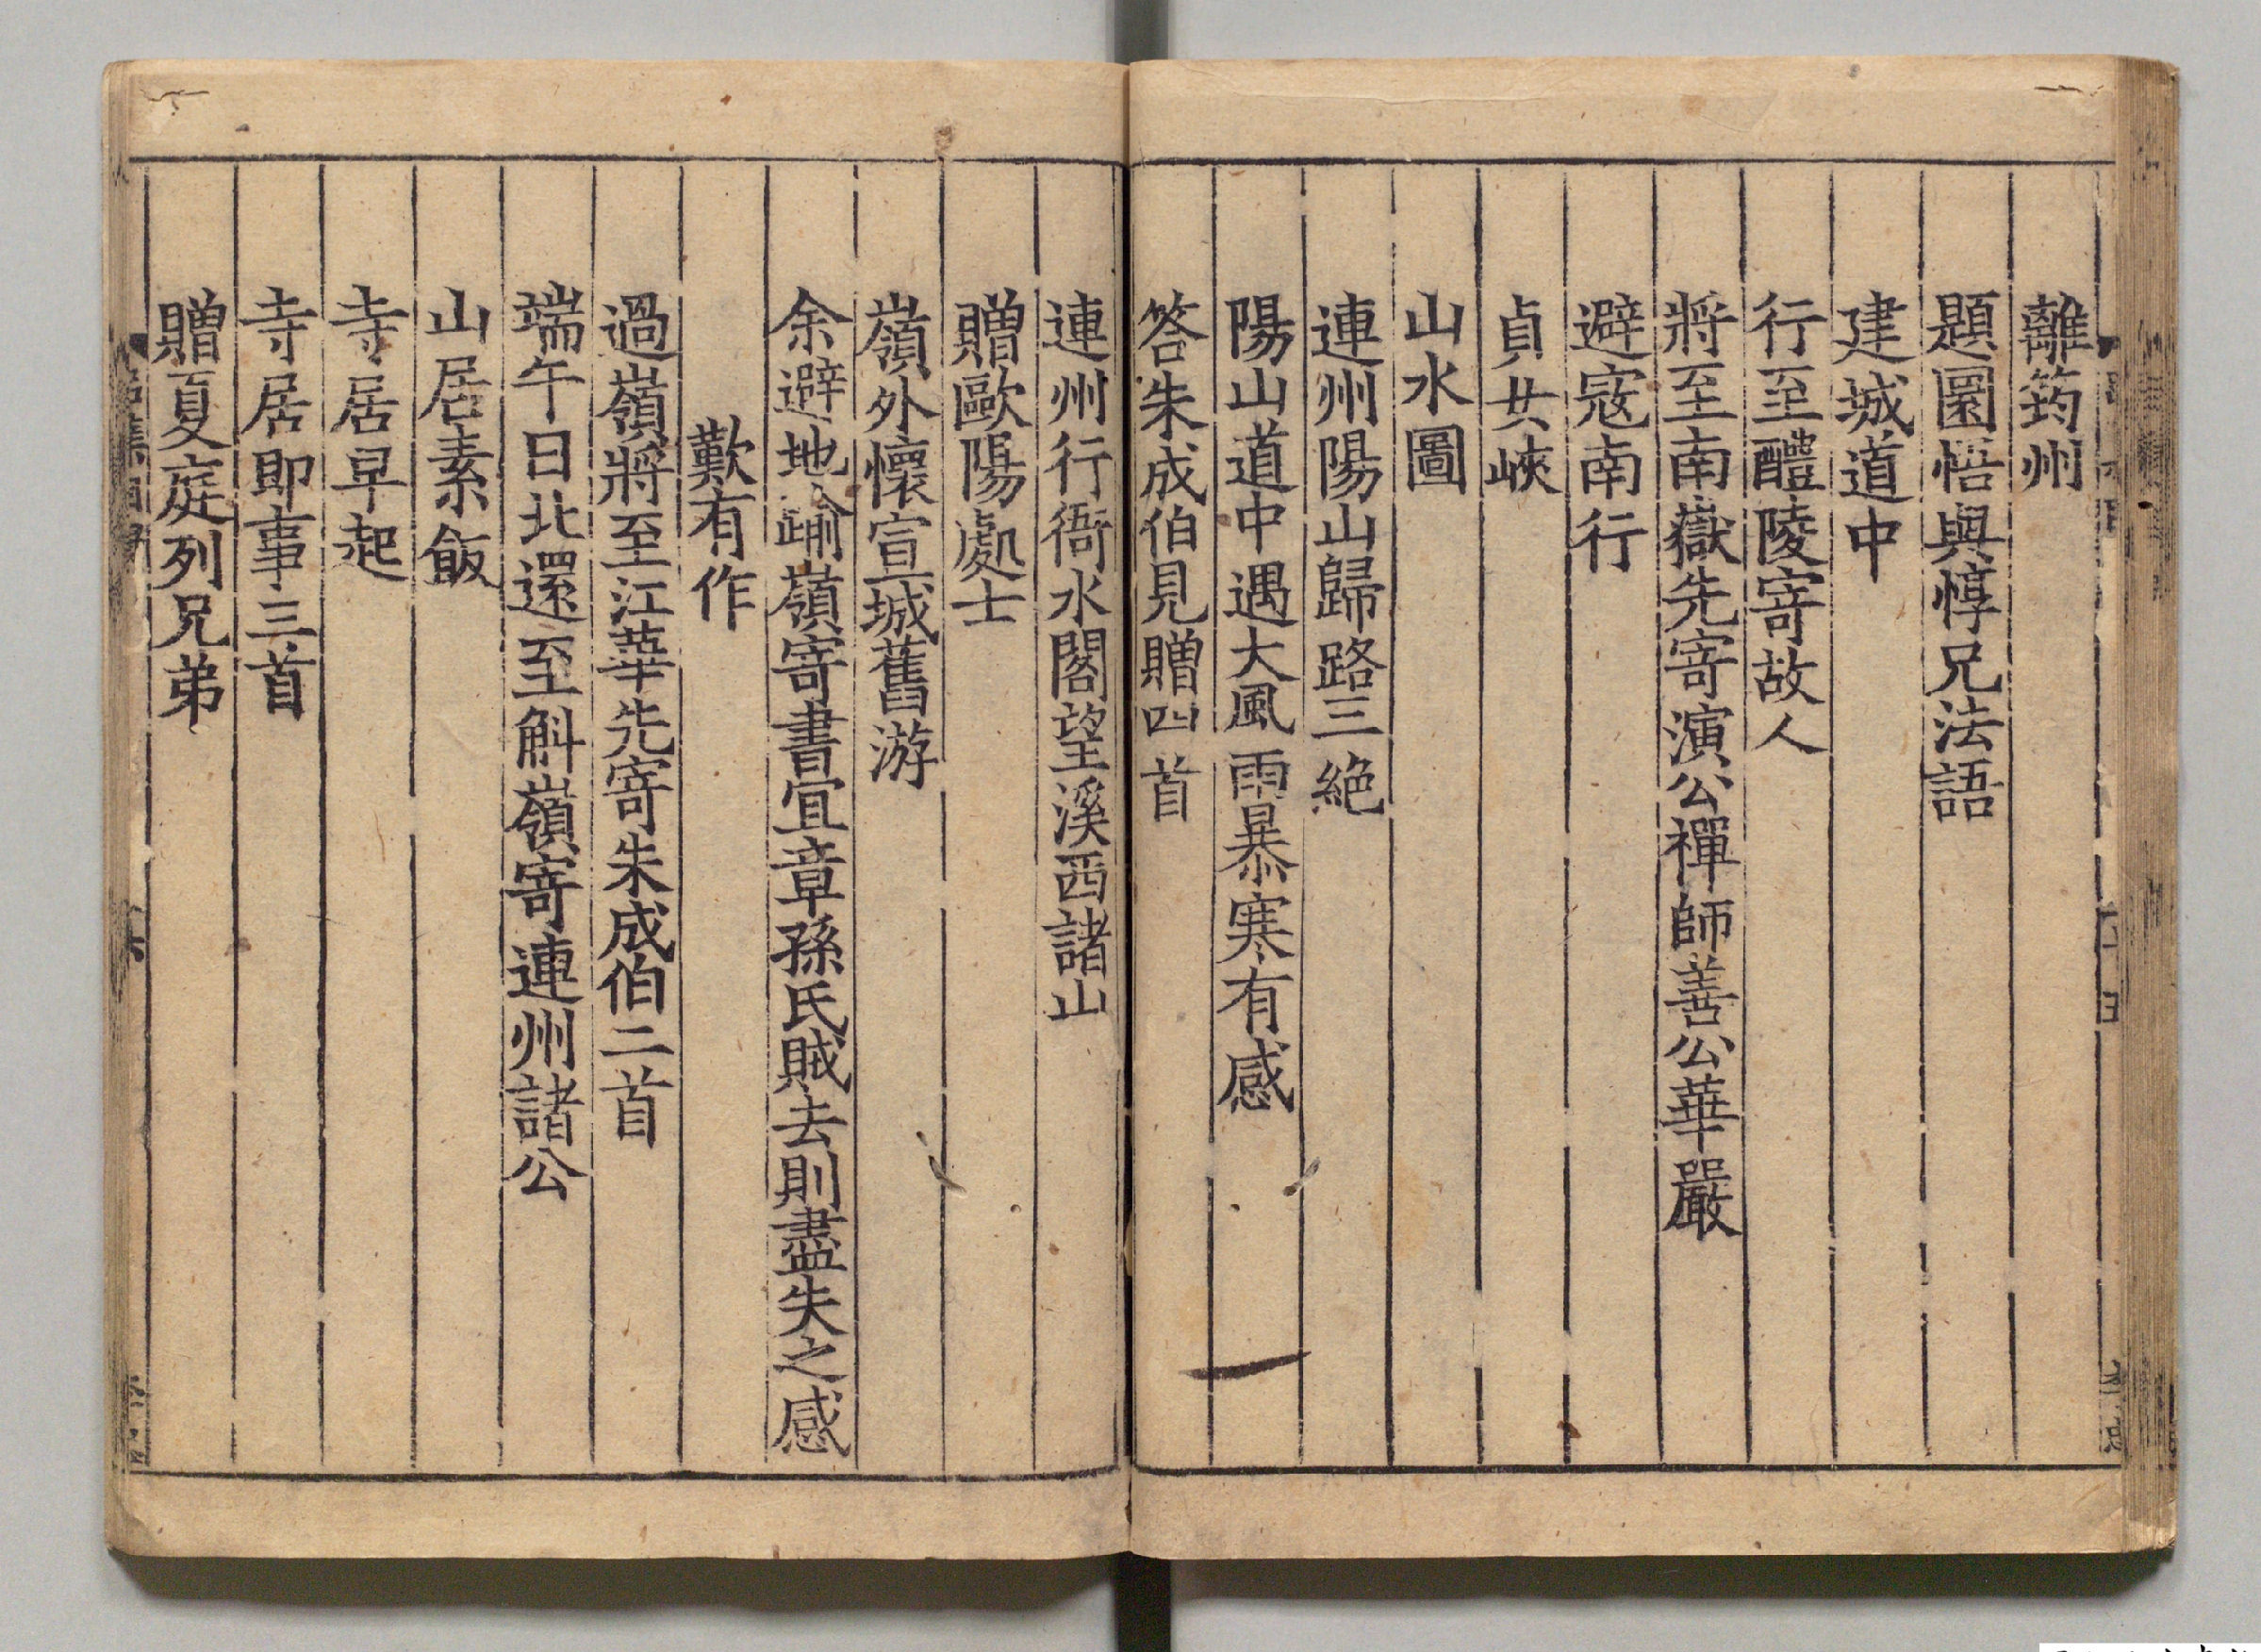 離筠州
題圜悟與惇兄法語
建城道中
行至醴陵寄故人
將至南嶽先寄演公禪師善公華嚴
避寇南行
貞女峽
山水圖
連州陽山歸路三絶
陽山道中遇大風雨暴寒有感
答朱成伯見贈四首
連州行衙水閣望溪西諸山
贈歐陽處士
嶺外懷宣城舊游
余避地踰嶺寄書宜章孫氏賊去則盡失之感
歎有作
過嶺將至江華先寄朱成伯二首
端午日北還至斛嶺寄連州諸公
山居素飯
寺居早起
寺居即事三首
贈夏庭列兄弟